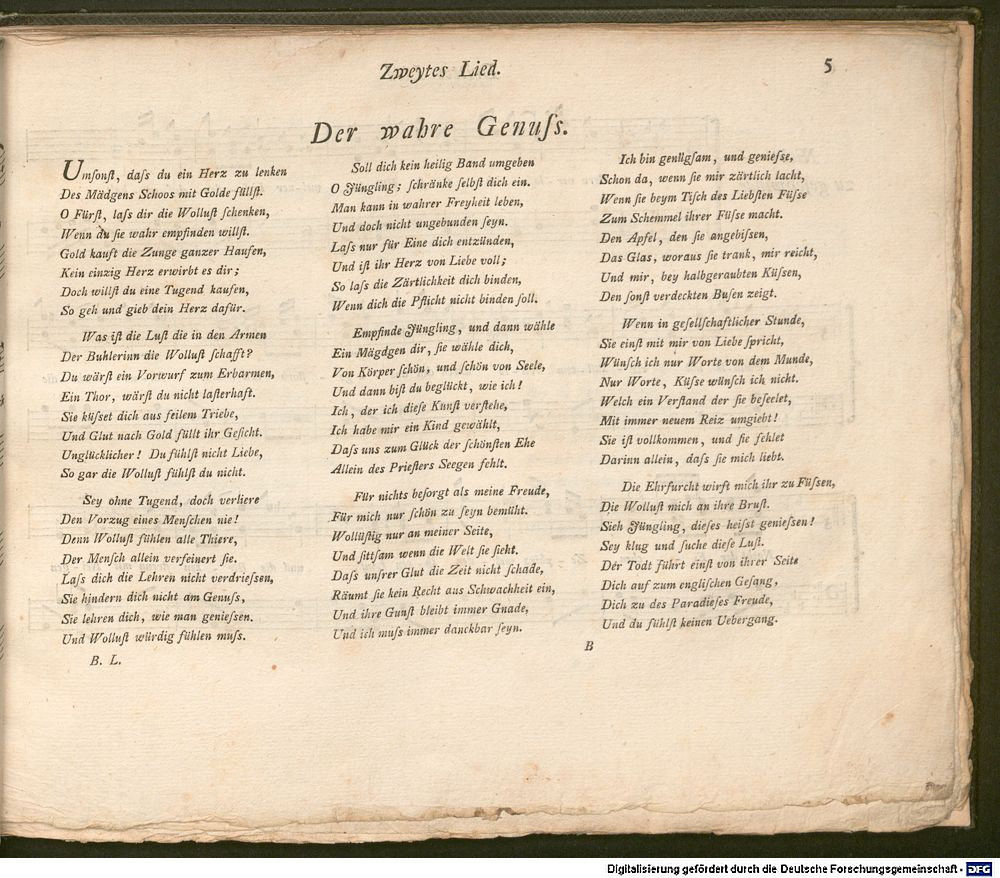 Zweytes Lied.
5
Der wahre Genuſs.
Umſonſt, daſs du ein Herz zu lenken
Des Mädgens Schoos mit Golde füllſt.
O Fürſt, laſs dir die Wolluſt ſchenken,
Wenn du ſie wahr empfinden willſt.
Gold kauft die Zunge ganzer Haufen,
Kein einzig Herz erwirbt es dir;
Doch willſt du eine Tugend kaufen,
So geh und gieb dein Herz dafür.
Was iſt die Luſt die in den Armen
Der Buhlerinn die Wolluſt ſchafft?
Du wärſt ein Vorwurf zum Erbarmen,
Ein Thor, wärſt du nicht laſterhaft.
Sie küſset dich aus feilem Triebe,
Und Glut nach Gold füllt ihr Geſicht.
Unglücklicher! Du fühlſt nicht Liebe,
So gar die Wolluſt fühlſt du nicht.
Sey ohne Tugend, doch verliere
Den Vorzug eines Menſchen nie!
Denn Wolluſt fühlen alle Thiere,
Der Menſch allein verfeinert ſie.
Laſs dich die Lehren nicht verdrieſsen,
Sie hindern dich nicht am Genuſs,
Sie lehren dich, wie man genieſsen.
Und Wolluſt würdig fühlen muſs.
B. L.
Soll dich kein heilig Band umgeben
O Jüngling; ſchränke ſelbſt dich ein.
Man kann in wahrer Freyheit leben,
Und doch nicht ungebunden ſeyn.
Laſs nur für Eine dich entzünden,
Und iſt ihr Herz von Liebe voll;
So laſs die Zärtlichkeit dich binden,
Wenn dich die Pflicht nicht binden ſoll.
Empfinde Jüngling, und dann wähle
Ein Mägdgen dir, ſie wähle dich,
Von Körper ſchön, und ſchön von Seele,
Und dann biſt du beglückt, wie ich!
Ich, der ich dieſe Kunſt verſtehe,
Ich habe mir ein Kind gewählt,
Daſs uns zum Glück der ſchönſten Ehe
Allein des Prieſters Seegen fehlt.
Für nichts beſorgt als meine Freude,
Für mich nur ſchön zu ſeyn bemüht.
Wollüſtig nur an meiner Seite,
Und ſittſam wenn die Welt ſie ſieht.
Daſs unſrer Glut die Zeit nicht ſchade,
Räumt ſie kein Recht aus Schwachheit ein,
Und ihre Gunſt bleibt immer Gnade,
Und ich muſs immer danckbar ſeyn.
Ich bin genügſam, und genieſse,
Schon da, wenn ſie mir zärtlich lacht,
Wenn ſie beym Tiſch des Liebſten Füſse
Zum Schemmel ihrer Füſse macht.
Den Apfel, den ſie angebiſsen,
Das Glas, woraus ſie trank, mir reicht,
Und mir, bey halbgeraubten Küſsen,
Den ſonſt verdeckten Buſen zeigt.
Wenn in geſellſchaftlicher Stunde,
Sie einſt mit mir von Liebe ſpricht,
Wünſch ich nur Worte von dem Munde,
Nur Worte, Küſse wünſch ich nicht.
Welch ein Verſtand der ſie beſeelet,
Mit immer neuem Reiz umgiebt!
Sie iſt vollkommen, und ſie fehlet
Darinn allein, daſs ſie mich liebt.
Die Ehrfurcht wirft mich ihr zu Füſsen,
Die Wolluſt mich an ihre Bruſt.
Sieh Jüngling, dieſes heiſst genieſsen!
Sey klug und ſuche dieſe Luſt.
Der Todt führt einſt von ihrer Seite
Dich auf zum engliſchen Geſang,
Dich zu des Paradieſes Freude,
Und du fühlſt keinen Uebergang.
B
Digitalisierung gefördert durch die Deutsche Forschungsgemeinschaft - DFG